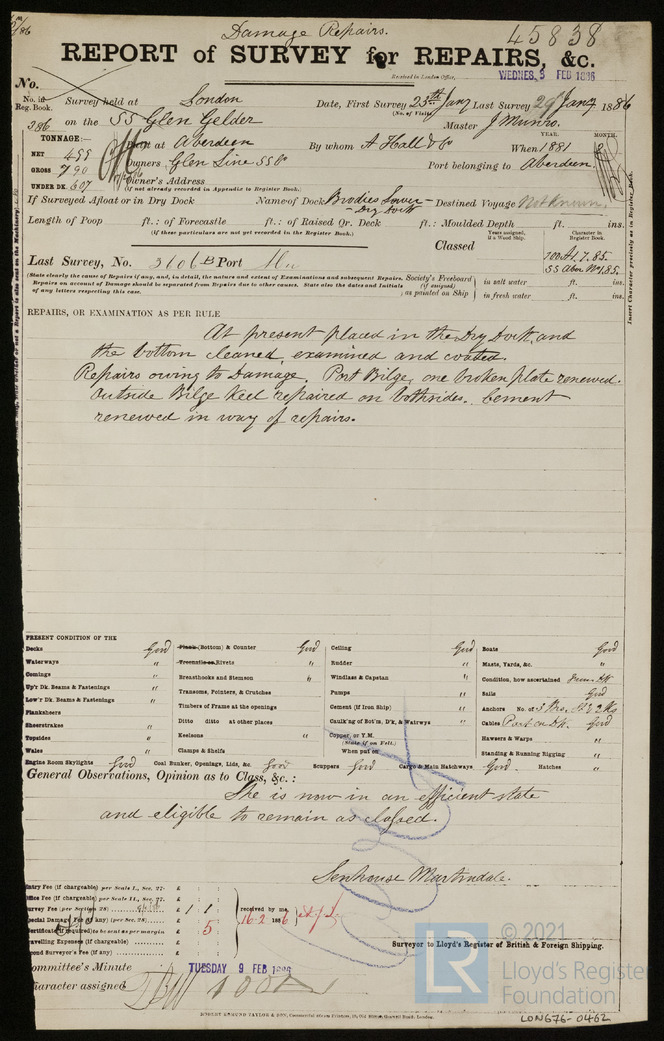 Damage Repairs.
45838
REPORT of SURVEY for REPAIRS, &c.
Received in London Office, WEDNES. 3 FEB 1886
No.
No. in Reg. Book. Survey held at London Date, First Survey 25th Jany Last Survey 29 Jany 1886
(No. of Visits)
386 on the SS Glen Gelder Master J Munro.
TONNAGE:— Built at Aberdeen By whom A Hall & Co When 1881 YEAR. MONTH.
NET 499 Owners Glen Line SS Co Port belonging to Aberdeen
GROSS 790 Owner's Address
UNDER DK. 607 (If not already recorded in Appendix to Register Book.)
If Surveyed Afloat or in Dry Dock Name of Dock Brodies Lower Dry Dock Destined Voyage Not Known.
Length of Poop ft.: of Forecastle ft.: of Raised Qr. Deck ft.: Moulded Depth ft. ins.
(If these particulars are not yet recorded in the Register Book.)
Classed
Years assigned, if a Wood Ship. Character in Register Book.
100 A1. 7.85.
Last Survey, No. 3106B Port
(State clearly the cause of Repairs if any, and, in detail, the nature and extent of Examinations and subsequent Repairs. Repairs on account of Damage should be separated from Repairs due to other causes. State also the dates and Initials of any letters respecting this case.
Society's Freeboard (if assigned) as painted on Ship in salt water ft. ins.
in fresh water ft. ins.
Insert Character precisely as in Register Book.
REPAIRS, OR EXAMINATION AS PER RULE
At present placed in the Dry Dock and
the bottom cleaned, examined and coated.
Repairs owing to Damage. Port Bilge, one broken plate renewed.
Outside Bilge Keel repaired on both sides. Cement
renewed in way of repairs.
PRESENT CONDITION OF THE
Decks Good Plank (Bottom) & Counter Good Ceiling Good Boats Good
Waterways " Treenails or Rivets " Rudder " Masts, Yards, &c. "
Comings " Breasthooks and Stemson " Windlass & Capstan " Condition, how ascertained from Dk
Up'r Dk. Beams & Fastenings " Transoms, Pointers, & Crutches Pumps " Sails Good
Low'r Dk. Beams & Fastenings " Timbers of Frame at the openings Cement (if Iron Ship) " Anchors No. of
Planksheers Ditto ditto at other places Caulk'ng of Bot'm, D'k, & Watrwys " Cables Part on Dk. Good
Sheerstrakes " Keelsons " Copper, or Y.M. Hawsers & Warps "
Topsides " Clamps & Shelfs (State if on Felt.) Standing & Running Rigging "
Wales " When put on
Engine Room Skylights Good Coal Bunker, Openings, Lids, &c. Good Scuppers Good Cargo & Main Hatchways Good. Hatches "
General Observations, Opinion as to Class, &c.:
She is now in an efficient state
and eligible to remain as classed.
Senhouse Martindale.
Surveyor to Lloyd's Register of British & Foreign Shipping.
Entry Fee (if chargeable) per Scale I., Sec. 27. £ : :
Office Fee (if chargeable) per Scale II., Sec. 27. £ : :
Survey Fee (per Section 28) £ 1 : 1 :
Special Damage Fee (if any) (per Sec. 28) £ : :
Certificate (if required) to be sent as per margin £ : 5 :
Travelling Expenses (if chargeable) £ : :
Second Surveyor's Fee (if any) £ : :
received by me,
16-2 1886
Committee's Minute TUESDAY 9 FEB 1886
Character assigned 100A
ROBERT EDMUND TAYLOR & SON, Commercial Steam Printers, 19, Old Street, Goswell Road, London.
© 2021
LR Lloyd's Register
Foundation
LON676-0462